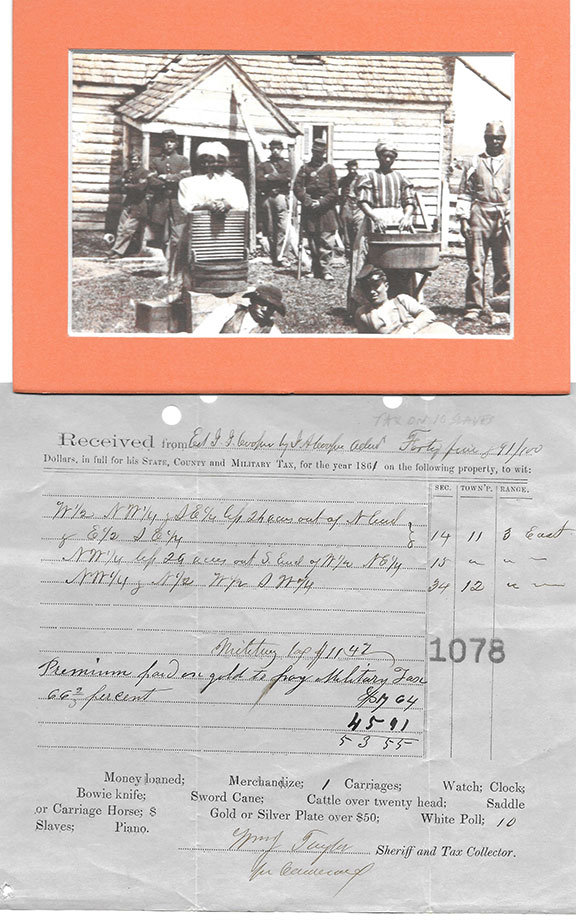 TAX ON 10 SLAVES
Received from Est J. J. Cooper by J. A. Cooper Admr Forty five & 91/100
Dollars, in full for his STATE, COUNTY and MILITARY TAX, for the year 1861 on the following property, to wit:
SEC. TOWN'P. RANGE.
W½ NW¼ & SE¼ l/p 24 acres out of N End
& E½ SE¼ 14 11 3 East
NW¼ l/p 29 acres out S. End of W½ NE¼ 15 " " "
NW¼ & N½ W½ SW¼ 34 12 " "
Military tax $11 42
1078
Premium paid on gold to pay Military Tax
66⅔ percent 7 64
45 91
53 55
Money loaned; Merchandize; 1 Carriages; Watch; Clock;
Bowie knife; Sword Cane; Cattle over twenty head; Saddle
or Carriage Horse; 8 Gold or Silver Plate over $50; White Poll; 10
Slaves; Piano.
Taylor Sheriff and Tax Collector.